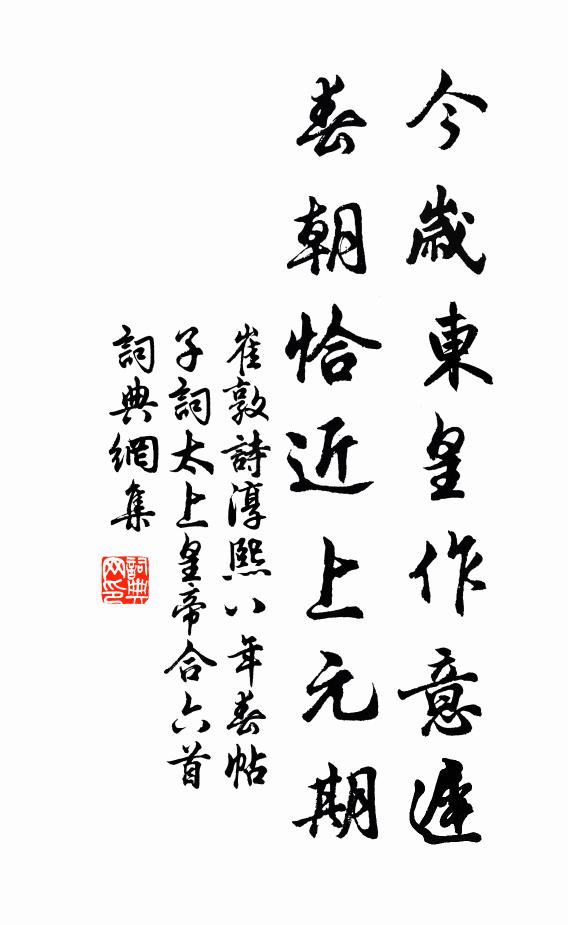 今歲東皇作意遲
春朝恰近上元期
崔敦詩淳熙八年春帖
子詞太上皇帝合六首
詞典網集
詞典网印